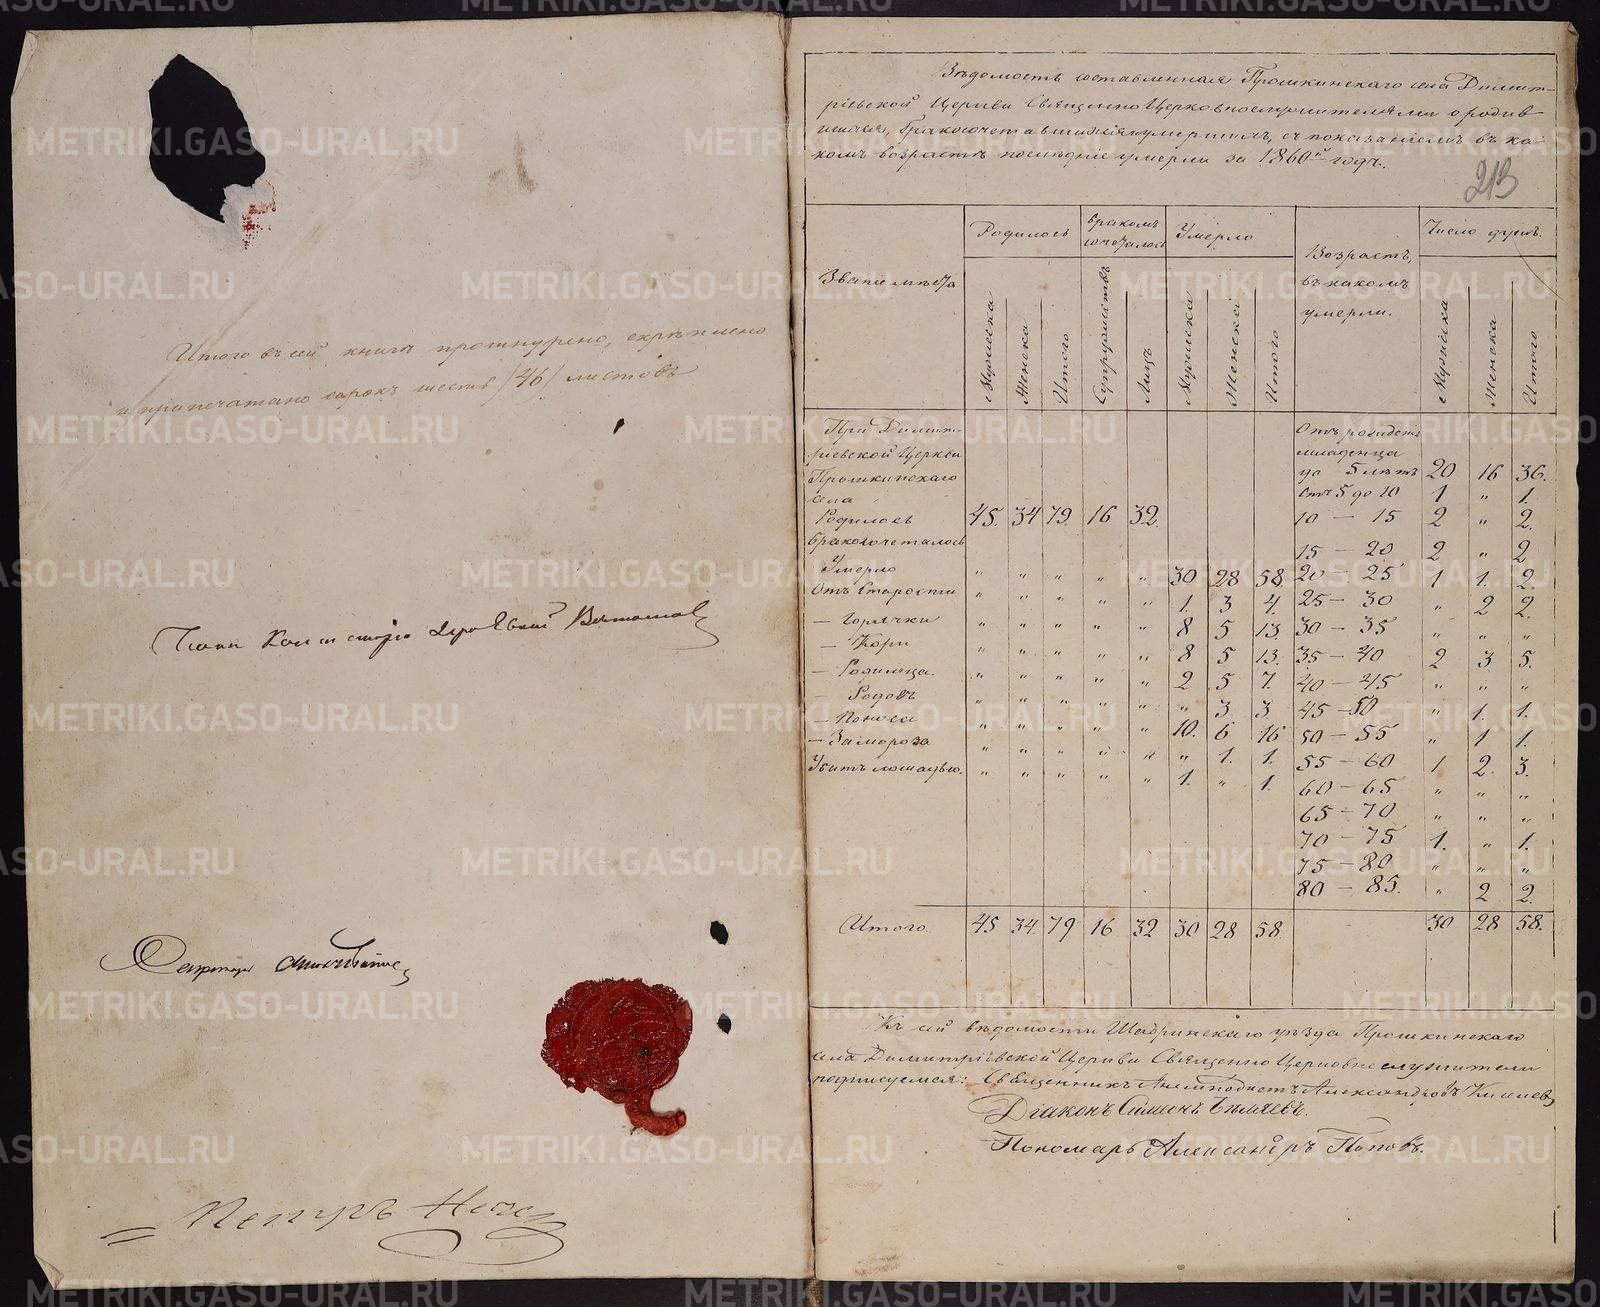 Итого въ сей книгѣ прошнуровано, скрѣплено
и припечатано сорокъ шесть /46/ листовъ
Членъ Консисторіи
Секретарь
Петръ
Вѣдомость составленная Прошкинскаго села Димит-
ріевской Церкви Священно Церковнослужителями о родив
шихся, бракосочетавшихся и умершихъ, съ показаніемъ въ ка-
комъ возрастѣ послѣдніе умерли за 1860й годъ.
213
Званіе мѣста
Родилось
Бракомъ сочеталось
Умерло
Возрастъ, въ какомъ умерли.
Число душъ.
Мужеска Женска Итого Супружествъ Лицъ Мужеска Женска Итого Мужеска Женска Итого
При Димит-
ріевской Церкви
Прошкинскаго
села
Родилось 45. 34 79. 16 32.
Бракосочеталось
Умерло " " " " " 30 28 58
Отъ Старости " " " " " 1. 3 4.
— Горячки " " " " " 8 5 13.
— Кори " " " " " 8 5 13.
— Родимца. " " " " " 2 5 7.
— Родовъ " " " " " " 3 3.
— Поноса " " " " " 10. 6 16
— Замороза " " " " " " 1. 1.
Убитъ лошадью. " " " " " 1. " 1.
Отъ рожденія
младенца
до 5 лѣтъ 20 16 36.
Отъ 5 до 10 1 " 1.
10 — 15 2 " 2.
15 — 20 2 " 2.
20 — 25 1 1. 2.
25 — 30 " 2 2.
30 — 35 " " "
35 — 40 2 3 5.
40 — 45 " " "
45 — 50 " 1. 1.
50 — 55 " 1 1.
55 — 60 1 2. 3.
60 — 65 " " "
65 — 70 " " "
70 — 75 1. " 1.
75 — 80 " " "
80 — 85. " 2 2.
Итого 45 34. 79 16 32 30 28 58. 30 28 58.
Къ сей вѣдомости Шадринскаго уѣзда Прошкинскаго
села Димитріевской Церкви Священно Церковнослужители
подписуемся: Священникъ Александровъ
Діаконъ Симеонъ
Пономарь Александръ Поповъ.
METRIKI.GASO-URAL.RU